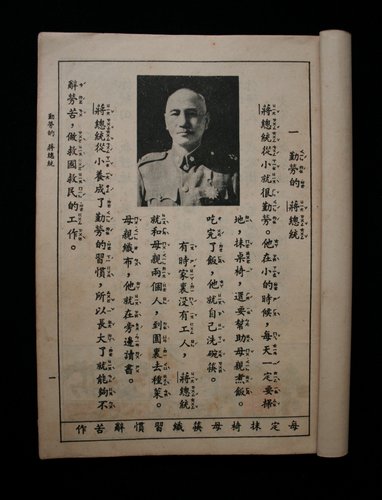 一 勤勞的 蔣總統
蔣總統從小就很勤勞。他在小的時候,每天一定要掃
地,抹桌椅,還要幫助母親煮飯。
吃完了飯,他就自己洗碗筷。
有時家裏沒有工人,蔣總統
就和母親兩個人,到園裏去種菜。
母親織布,他就在旁邊讀書。
蔣總統從小養成了勤勞的習慣,所以長大了就能夠不
辭勞苦,做救國救民的工作。
每定抹椅母筷織習慣辭苦作
勤勞的 蔣總統
一